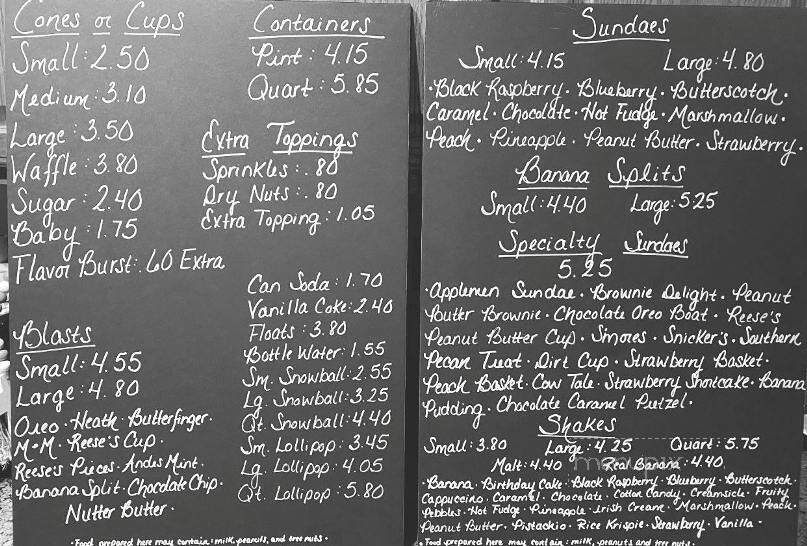 Cones or Cups
Small: 2.50
Medium: 3.10
Large: 3.50
Waffle: 3.80
Sugar: 2.40
Baby: 1.75
Flavor Burst: .60 Extra
Containers
Pint: 4.15
Quart: 5.85
Extra Toppings
Sprinkles: .80
Dry Nuts: .80
Extra Topping: 1.05
Blasts
Small: 4.55
Large: 4.80
Oreo · Heath · Butterfinger ·
M·M · Reese's Cup ·
Reese's Pieces · Andes Mint ·
Banana Split · Chocolate Chip ·
Nutter Butter ·
Can Soda: 1.70
Vanilla Coke: 2.40
Floats: 3.80
Bottle Water: 1.55
Sm. Snowball: 2.55
Lg. Snowball: 3.25
Qt. Snowball: 4.40
Sm. Lollipop: 3.45
Lg. Lollipop: 4.05
Qt. Lollipop: 5.80
· Food prepared here may contain: milk, peanuts, and tree nuts ·
Sundaes
Small: 4.15 Large: 4.80
· Black Raspberry · Blueberry · Butterscotch ·
Caramel · Chocolate · Hot Fudge · Marshmallow ·
Peach · Pineapple · Peanut Butter · Strawberry ·
Banana Splits
Small: 4.40 Large: 5.25
Specialty Sundaes
5.25
· Applemen Sundae · Brownie Delight · Peanut
Butter Brownie · Chocolate Oreo Boat · Reese's
Peanut Butter Cup · S'mores · Snicker's · Southern
Pecan Treat · Dirt Cup · Strawberry Basket ·
Peach Basket · Cow Tale · Strawberry Shortcake · Banana
Pudding · Chocolate Caramel Pretzel ·
Shakes
Small: 3.80 Large: 4.25 Quart: 5.75
Malt: 4.40 Real Banana: 4.40
· Banana · Birthday Cake · Black Raspberry · Blueberry · Butterscotch ·
Cappuccino · Caramel · Chocolate · Cotton Candy · Creamsicle · Fruity
Pebbles · Hot Fudge · Pineapple · Irish Cream · Marshmallow · Peach ·
Peanut Butter · Pistachio · Rice Krispie · Strawberry · Vanilla ·
· Food prepared here may contain: milk, peanuts, and tree nuts ·